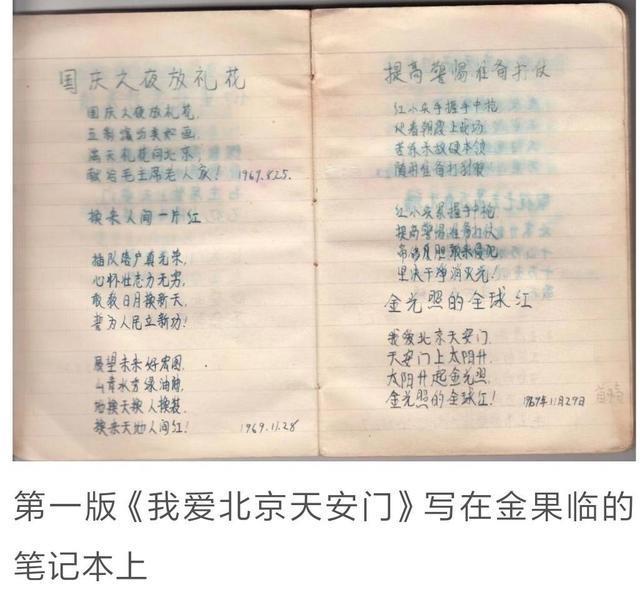 国庆之夜放礼花
国庆之夜放礼花,
五彩缤纷美如画,
满天礼花向北京,
献给毛主席老人家! 1969.8.25.
换来人间一片红
插队落户真光荣,
心怀壮志力无穷,
敢教日月换新天,
誓为人民立新功!
展望未来好宏图,
山青水秀绿油油,
地换天换人换装,
换来天地人间红! 1969.11.28
提高警惕准备打仗
红小兵手握手中枪
迎着朝霞上战场
苦练杀敌硬本领
随时准备打
红小兵紧握手中枪
提高警惕准备打仗
帝修反胆敢来侵犯
坚决干净消灭光!
金光照的全球红
我爱北京天安门,
天安门上太阳升
太阳升起金光照
金光照的全球红! 1969年11月29日
第一版《我爱北京天安门》写在金果临的
笔记本上